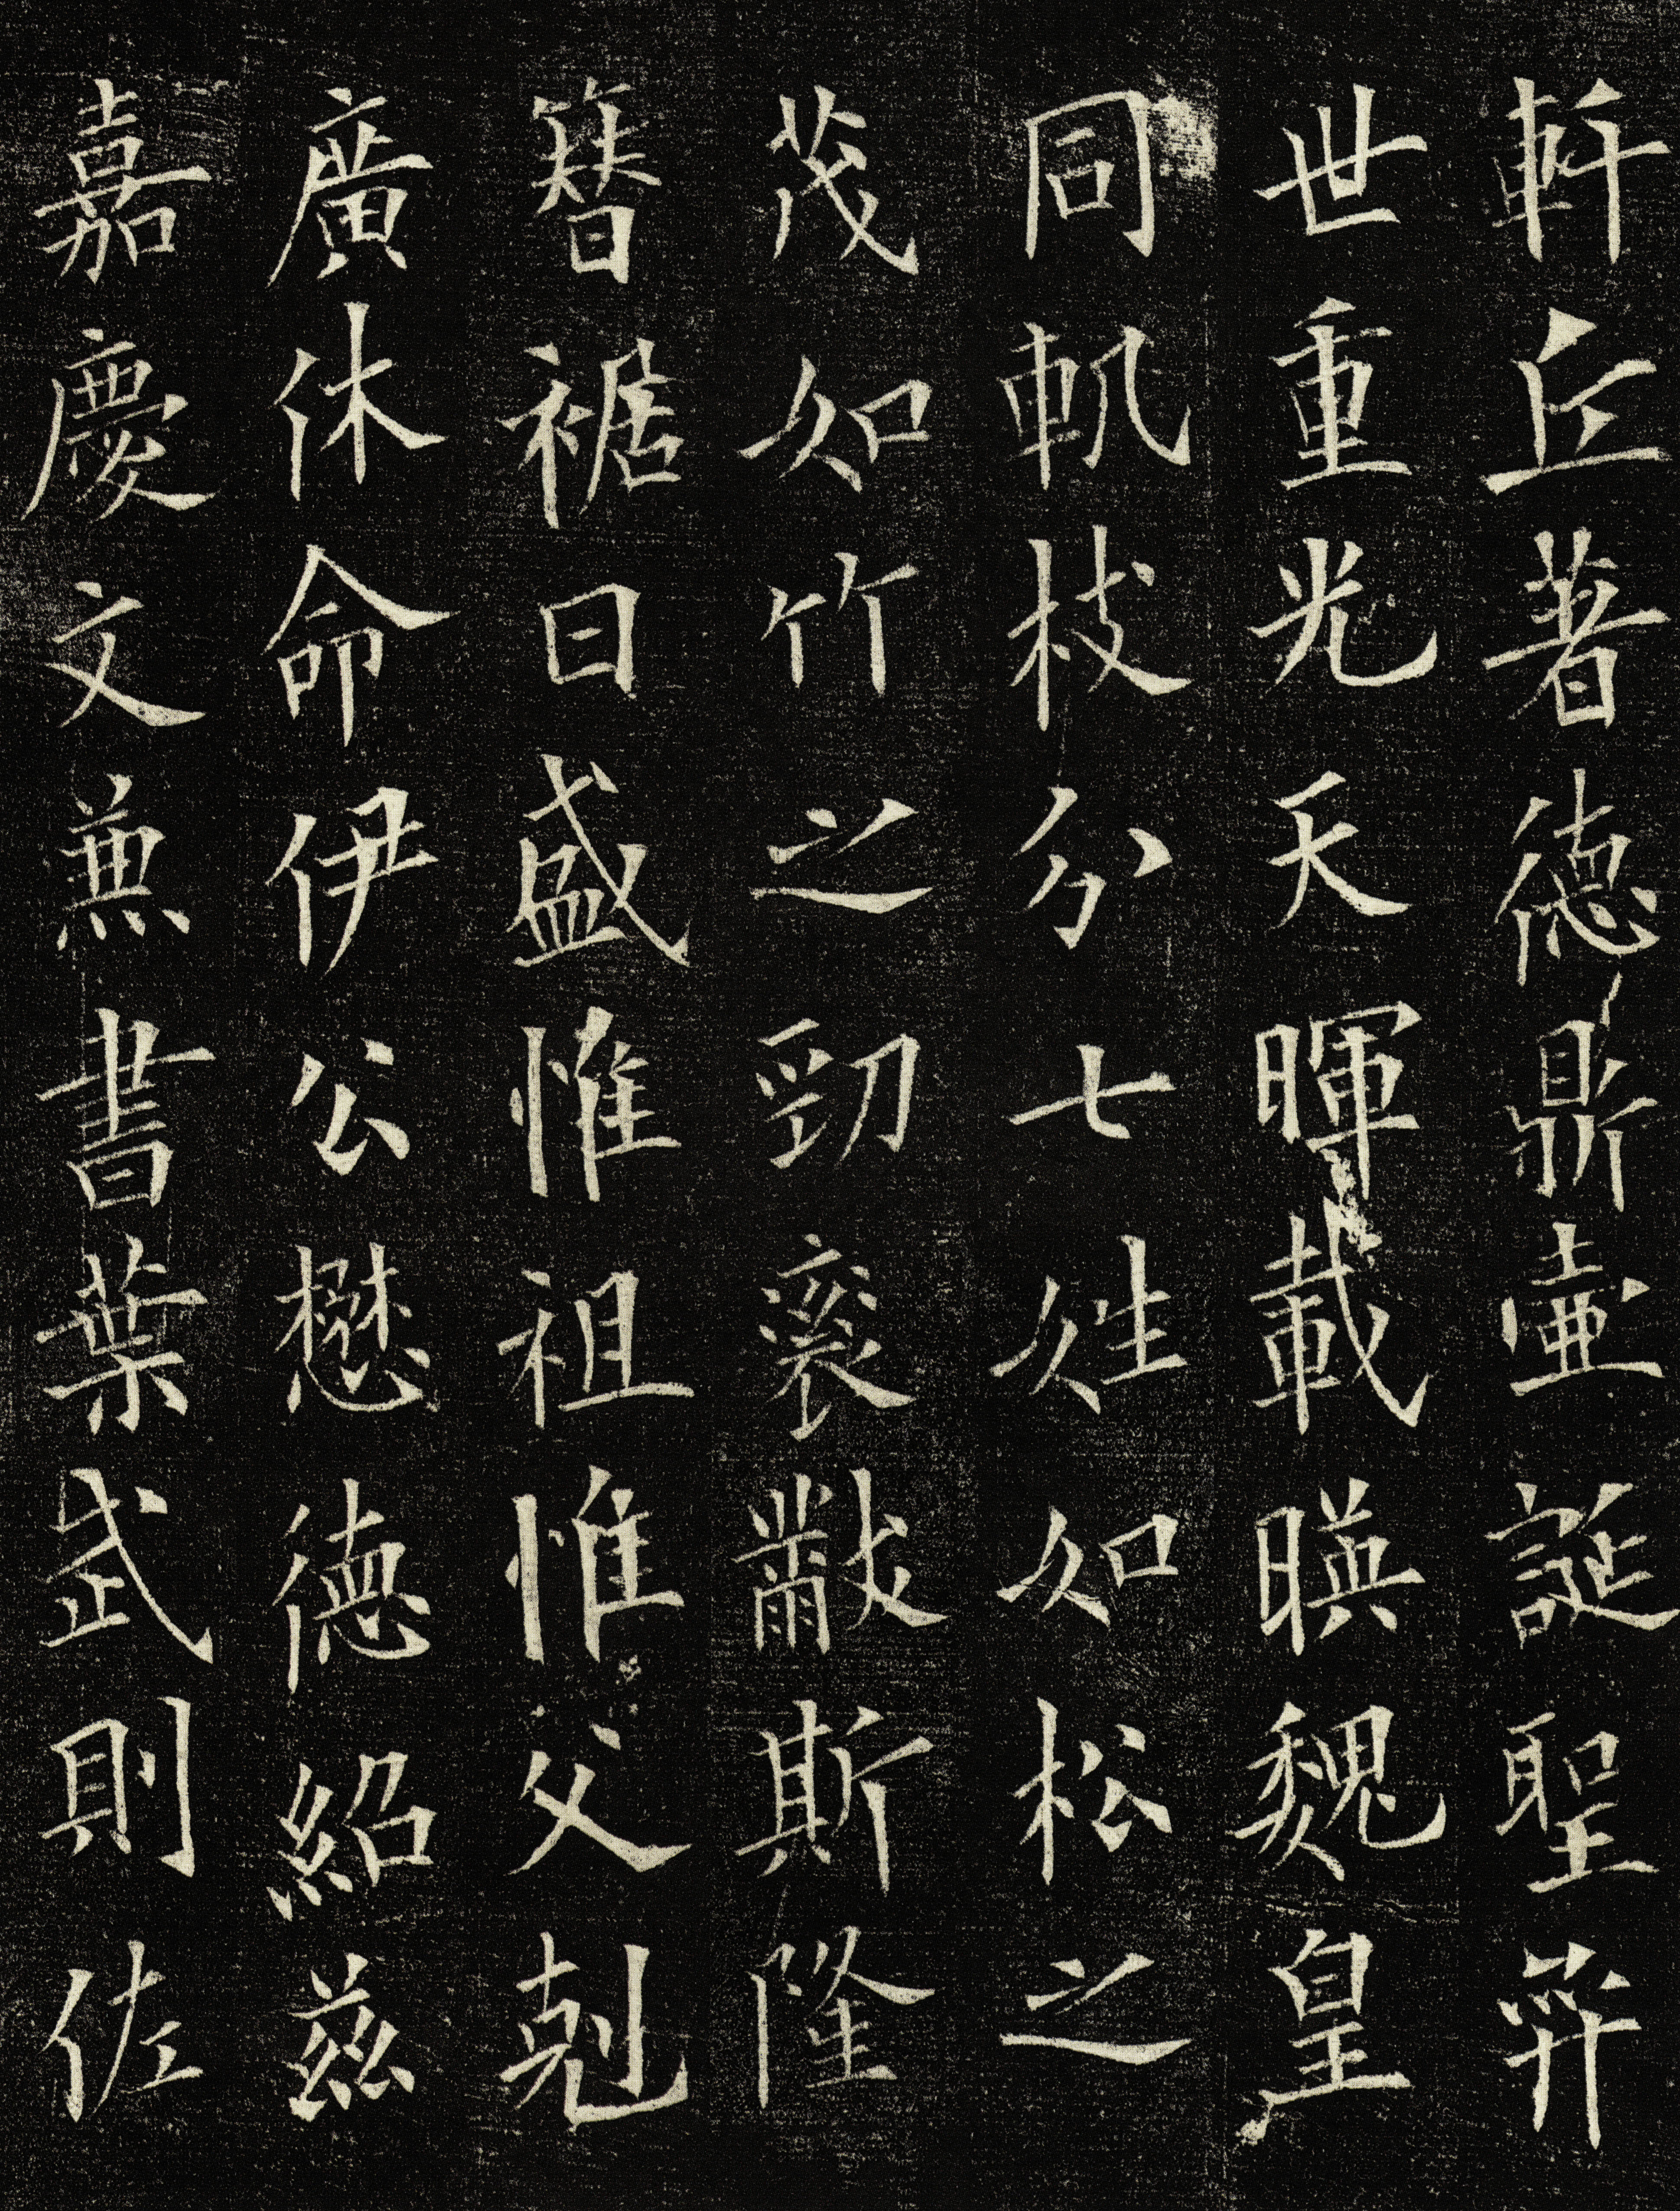 軒丘著德鼎壷誕聖弈
世重光天暉載暎魏皇
同軌枝分七姓如松之
茂如竹之勁袞黻斯隆
簪裾日盛惟祖惟父剋
廣休命伊公懋德紹茲
嘉慶文兼書葉武則佐